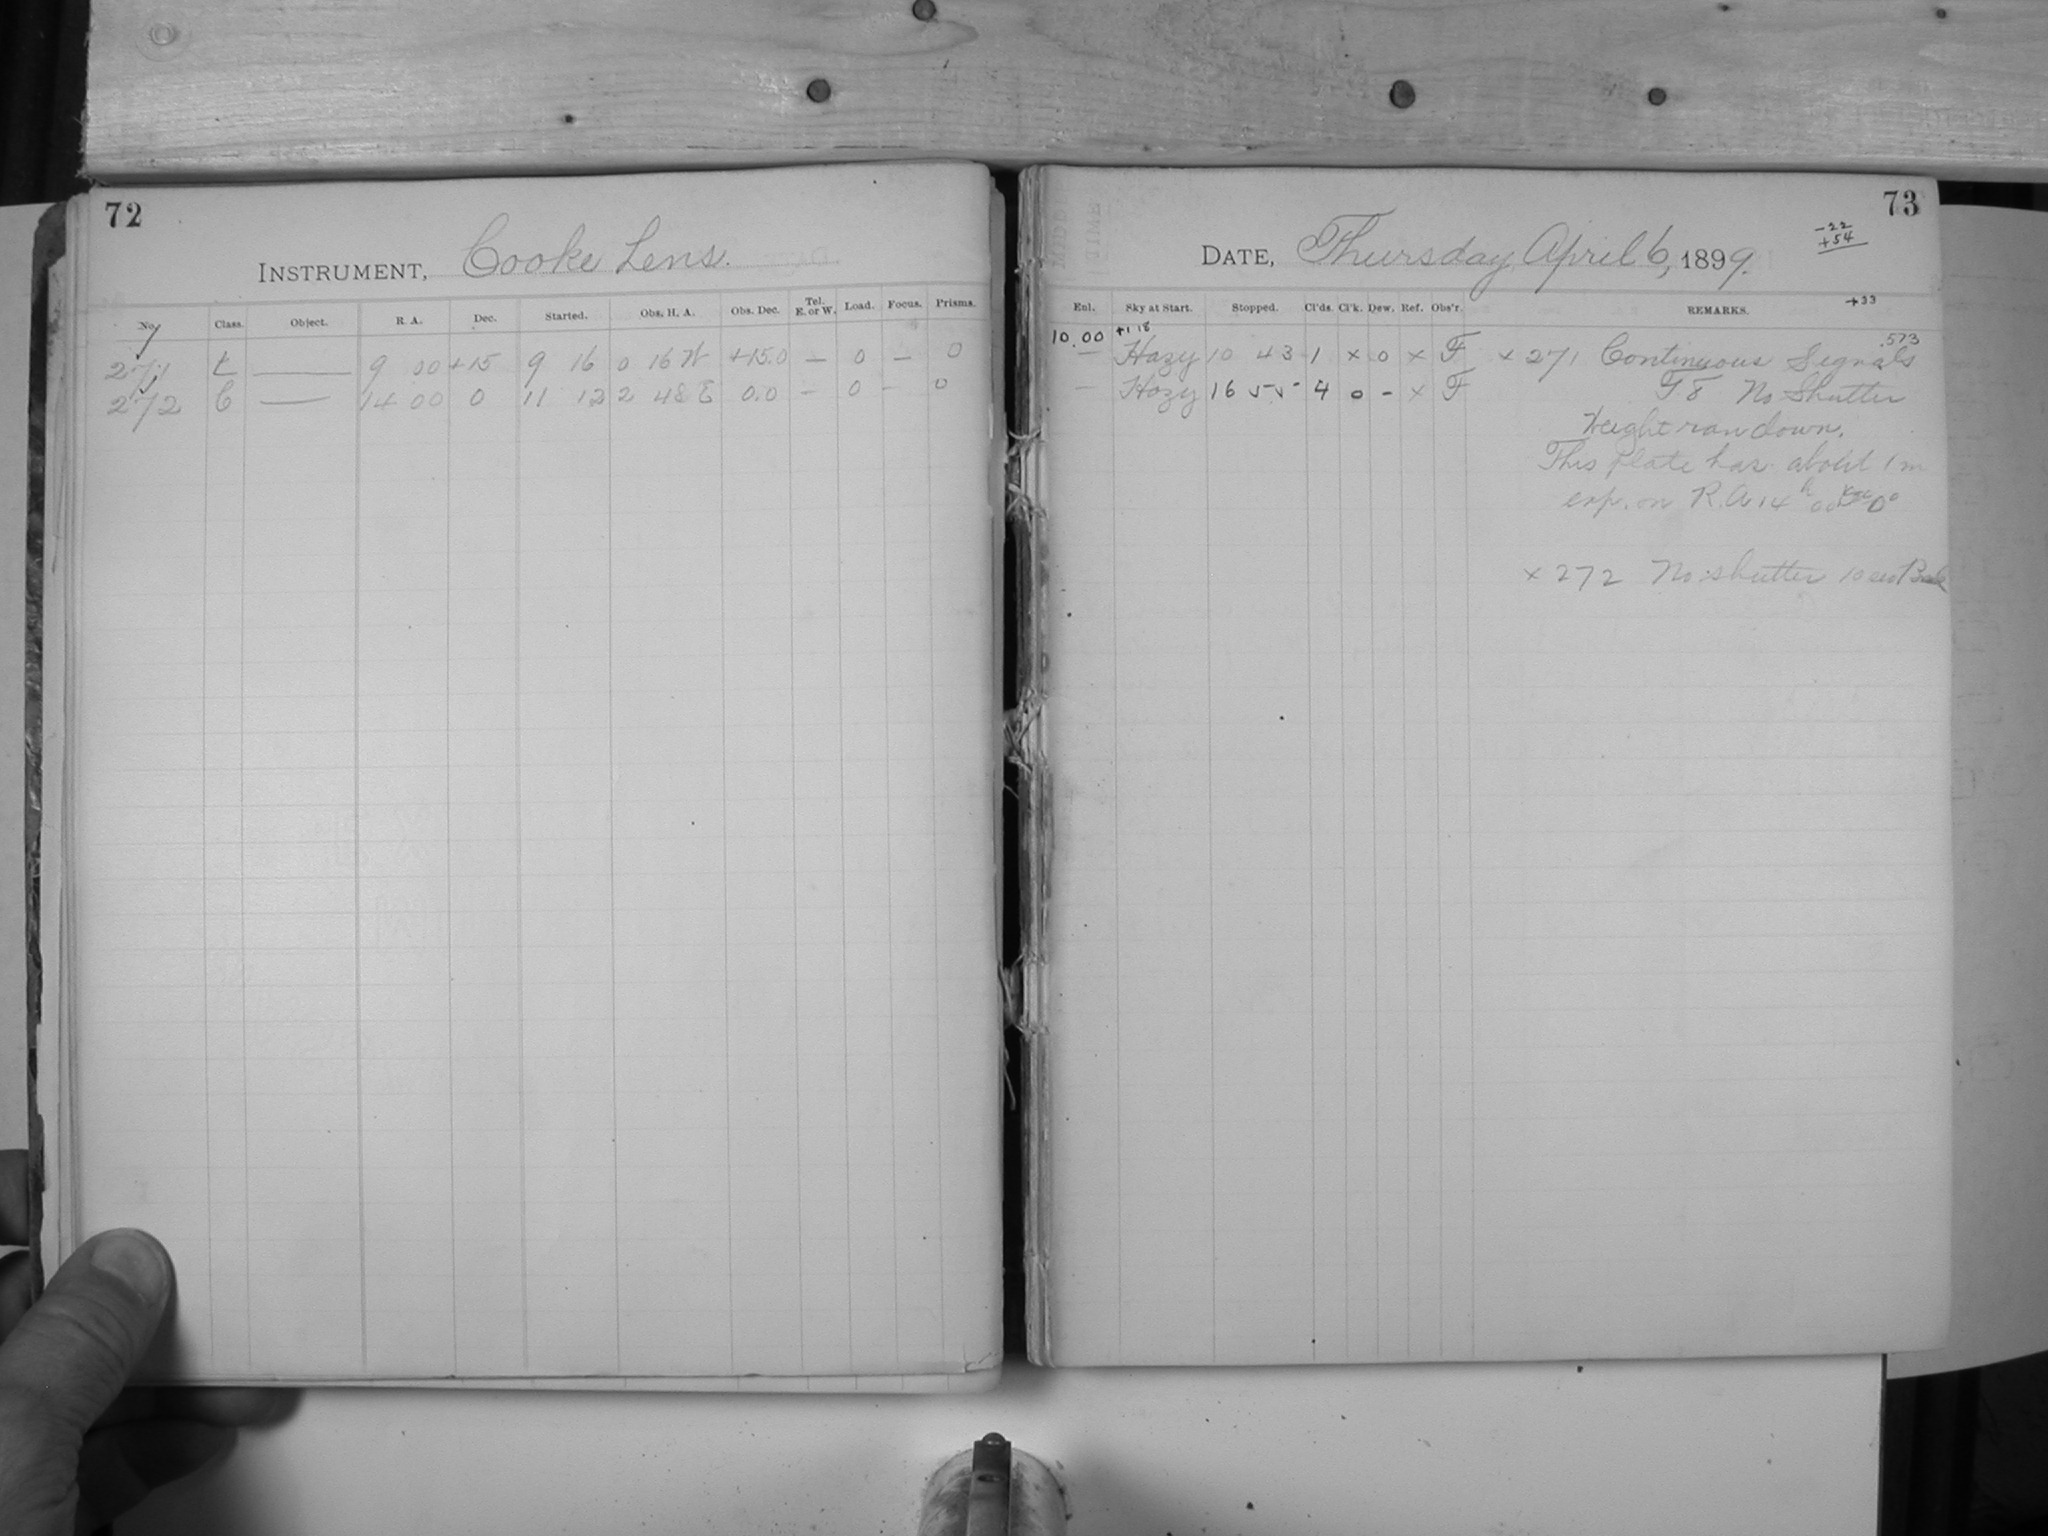 72
INSTRUMENT, Cooke Lens.
No. Class. Object. R. A. Dec. Started. Obs. H. A. Obs. Dec. Tel. E. or W. Load. Focus. Prisms.
271 C — 9 00 +15 9 16 0 16 W +15.0 — 0 — 0
272 C — 14 00 0 11 12 2 48 E 0.0 — 0 — 0
73
-22
+54
DATE, Thursday April 6, 1899.
+33
Exl. Sky at Start. Stopped. Cl'ds. Cl'k. Dew. Ref. Obs'r. REMARKS.
10.00 +1 18 .573
— Hazy 10 43 1 x 0 x F x 271 Continuous Signals
— Hazy 16 55 4 0 - x F No Shutter
Weight ran down.
This plate has about 1 m
exp. on R.A. 14 h 00 0°
x 272 No shutter 10 sec